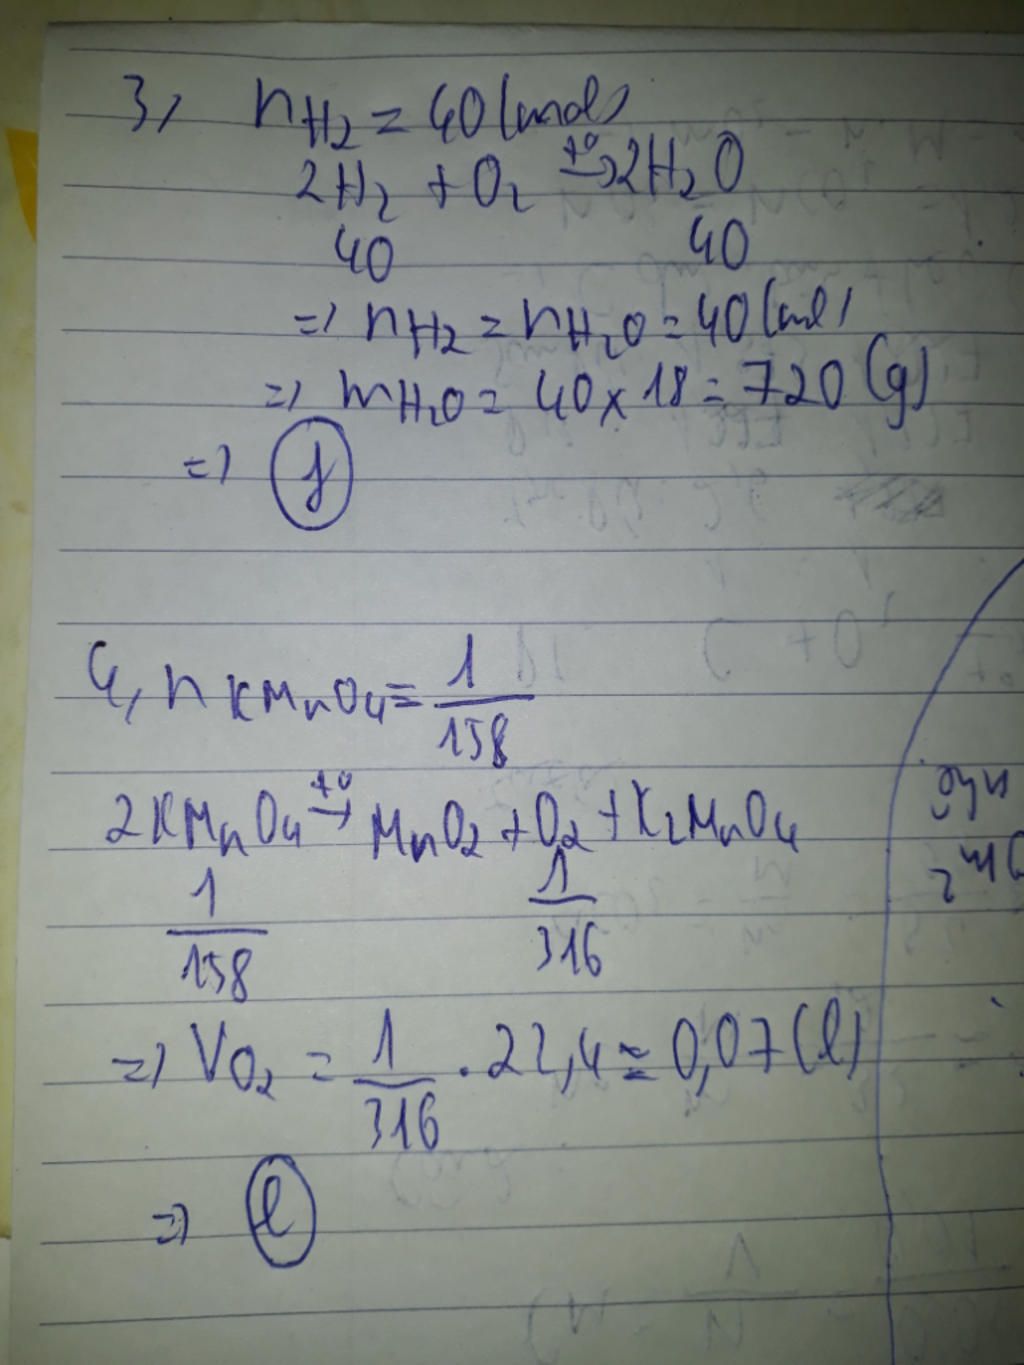 3, nH2 = 40 (mol)
2H2 + O2 t° → 2H2O
40 40
=) nH2 = nH2O = 40 (mol)
=) mH2O = 40 x 18 = 720 (g)
=) f
4, nKMnO4 = 1/158
2KMnO4 t° → MnO2 + O2 + K2MnO4
1/158 1/316
=) VO2 = 1/316 . 22,4 ≈ 0,07 (l)
=) e